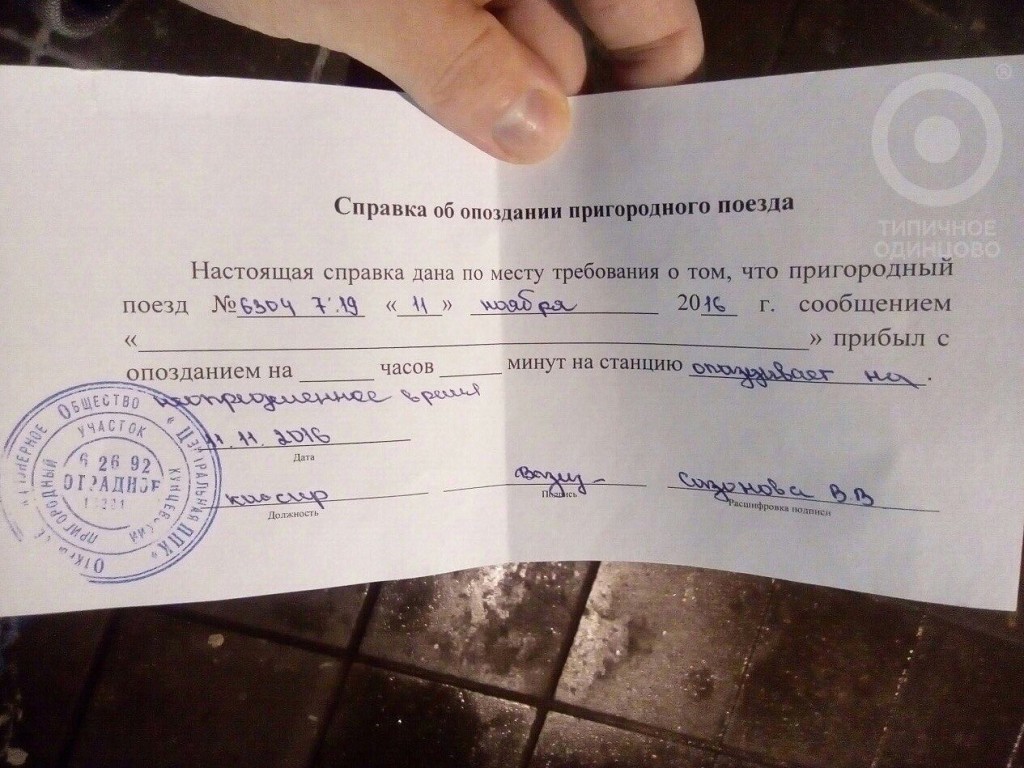 ®
ТИПИЧНОЕ
ОДИНЦОВО
Справка об опоздании пригородного поезда
Настоящая справка дана по месту требования о том, что пригородный
поезд №6304 7:19 «11» ноября 2016 г. сообщением
«___» прибыл с
опозданием на ___ часов ___ минут на станцию опаздывает на.
неопределенное время
11.11.2016
Дата
кассир Сазонова В.В
Должность Подпись Расшифровка подписи
ОБЩЕСТВО «ЦЕНТРАЛЬНАЯ ППК»
ПРИГОРОДНЫЙ УЧАСТОК
6 26 92
ОТРАДНОЕ